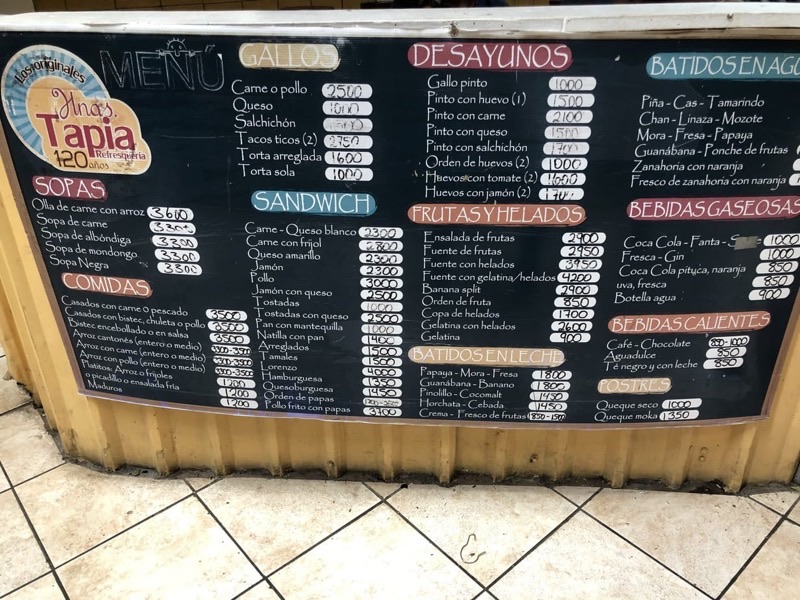 Los originales
Hnas.
Tapia
Refresquería
120
años
MENÚ
SOPAS
Olla de carne con arroz 3600
Sopa de carne 3300
Sopa de albóndiga 3300
Sopa de mondongo 3300
Sopa Negra 3300
COMIDAS
Casados con carne o pescado 3500
Casados con bistec, chuleta o pollo 3500
Bistec encebollado o en salsa 3500
Arroz cantonés (entero o medio)
Arroz con carne (entero o medio)
Arroz con pollo (entero o medio)
Platitos: Arroz o frijoles 1200
o picadillo o ensalada fría 1200
Maduros 1200
GALLOS
Carne o pollo 2500
Queso 1000
Salchichón
Tacos ticos (2) 2750
Torta arreglada 1600
Torta sola 1000
SANDWICH
Carne - Queso blanco 2300
Carne con frijol 2800
Queso amarillo 2300
Jamón 2300
Pollo 3000
Jamón con queso 2500
Tostadas 1000
Tostadas con queso 2500
Pan con mantequilla 1000
Natilla con pan 1400
Arreglados 1500
Tamales 1500
Lorenzo 4000
Hamburguesa 1350
Quesoburguesa 1450
Orden de papas
Pollo frito con papas 3700
DESAYUNOS
Gallo pinto 1000
Pinto con huevo (1) 1500
Pinto con carne 2100
Pinto con queso 1500
Pinto con salchichón 1700
Orden de huevos (2) 1000
Huevos con tomate (2) 1600
Huevos con jamón (2) 1700
FRUTAS Y HELADOS
Ensalada de frutas 2900
Fuente de frutas 2950
Fuente con helados 3950
Fuente con gelatina/helados 4200
Banana split 2900
Orden de fruta 850
Copa de helados 1700
Gelatina con helados 2600
Gelatina 900
BATIDOS EN LECHE
Papaya - Mora - Fresa 1800
Guanábana - Banano 1800
Pinolillo - Cocomalt 1450
Horchata - Cebada 1450
Crema - Fresco de frutas 850-1500
BATIDOS EN AGU
Piña - Cas - Tamarindo
Chan - Linaza - Mozote
Mora - Fresa - Papaya
Guanábana - Ponche de frutas
Zanahoria con naranja
Fresco de zanahoria con naranja
BEBIDAS GASEOSAS
Coca Cola - Fanta - 1000
Fresca - Gin 1000
Coca Cola pityca, naranja 850
uva, fresca 850
Botella agua 900
BEBIDAS CALIENTES
Café - Chocolate
Aguadulce 850
Té negro y con leche 850
POSTRES
Queque seco 1000
Queque moka 1350